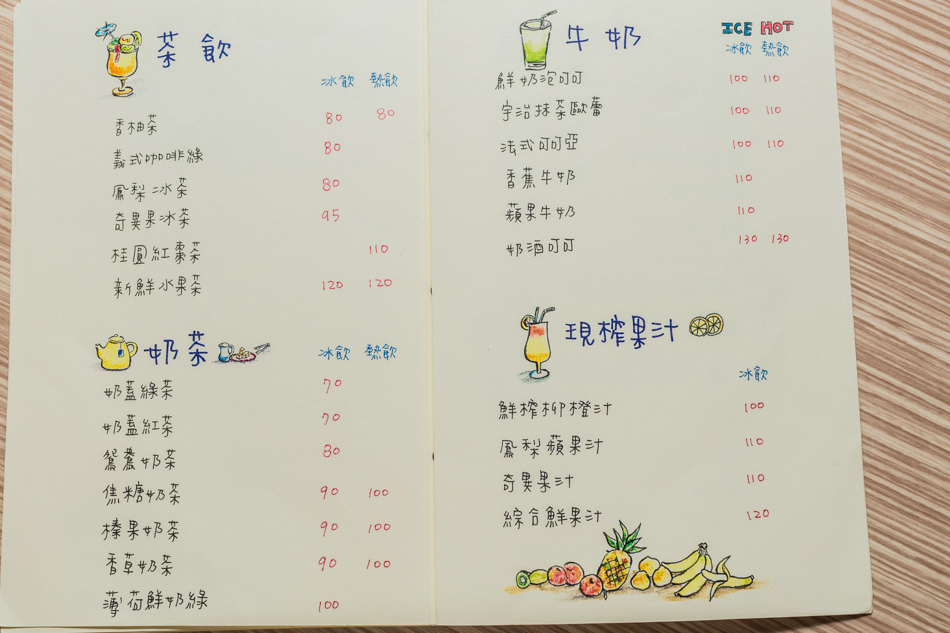 茶飲
冰飲 熱飲
香柚茶 80 80
義式咖啡綠 80
鳳梨冰茶 80
奇異果冰茶 95
桂圓紅棗茶 110
新鮮水果茶 120 120
奶茶
冰飲 熱飲
奶蓋綠茶 70
奶蓋紅茶 70
鴛鴦奶茶 80
焦糖奶茶 90 100
榛果奶茶 90 100
香草奶茶 90 100
薄荷鮮奶綠 100
牛奶 ICE HOT
冰飲 熱飲
鮮奶泡可可 100 110
宇治抹茶歐蕾 100 110
法式可可亞 100 110
香蕉牛奶 110
蘋果牛奶 110
奶酒可可 130 130
現榨果汁
冰飲
鮮榨柳橙汁 100
鳳梨蘋果汁 110
奇異果汁 110
綜合鮮果汁 120